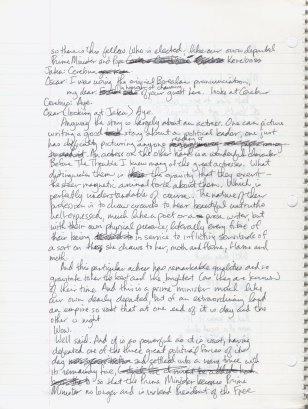 so there is this fellow who is elected, like our own departed
Prime Minister and Pye Kereboss
Jaka: Cerebus
Oscar: I was using the original Borealan pronunciation,
my dear of your guest here. looks at Cerebus
Cerebus: Aye.
Oscar: (Looking at Jaka) Aye.
Anyway the story is largely about an actress. One can picture
writing a good story about a political leader, one just
has difficulty picturing anyone reading it
An actress on the other hand is a wonderful character
Before the Throats I knew many of the great actresses. What
distinguishes them is the gravity that they exert –
the sheer magnetic animal force about them. Which is
perfectly understandable of course. The nature of their
profession is to draw crowds to hear beautiful words
well-expressed, much like a poet or a prose writer but
with their own physical presence, literally every fibre of
their being in service to inflicting servitude of
a sort on those she draws to her, moth and flame, flame and
moth.
And this particular actress has remarkable qualities and so
gravitate to her the best and the brightest (we like are known)
of their time. And this is a prime minister much like
our own dearly departed, but of an extraordinary land
an empire so vast that at one end of it is day and the
other is night
Wow.
Well said. And it is so powerful as it is vast, having
defeated one of the three great political forces of its
day and settled into a wary truce with
its remaining rival,
so that the Prime Minister becomes Prime
Minister no longer and is instead President of the Free